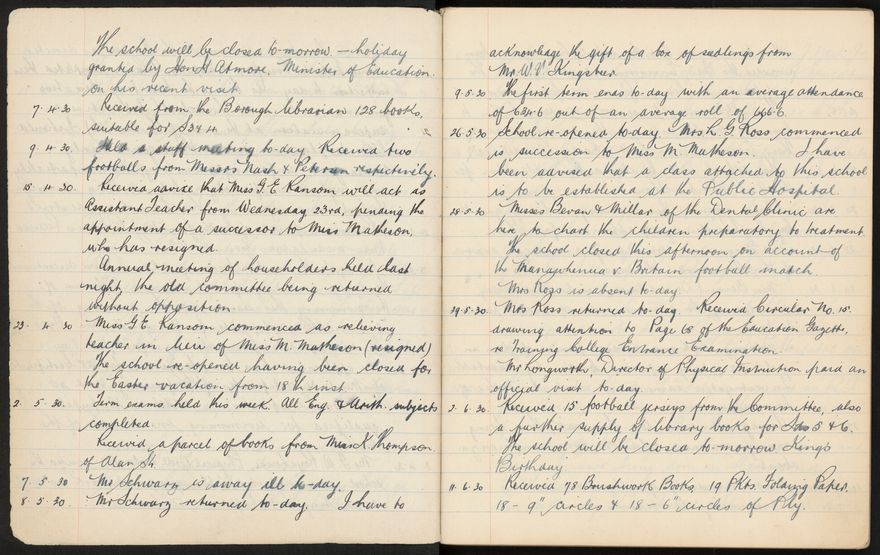 The school will be closed to-morrow. — holiday
granted by Hon H. Atmore, Minister of Education.
on his recent visit.
7. 4. 30 Received from the Borough librarian 128 books,
suitable for S3 & 4.
9. 4. 30 Held a staff meeting to-day Received two
footballs from Messrs Nash & Petersen respectively.
15. 4. 30. Received advice that Miss G. E. Ransom will act as
Assistant Teacher from Wednesday 23rd, pending the
appointment of a sucessor to Miss Matheson,
who has resigned.
Annual meeting of householders held last
night, the old committee being returned
without opposition.
23. 4. 30 Miss G. E. Ransom commenced as relieving
teacher in lieu of Miss M. Matheson (resigned)
The school re-opened having been closed for
the Easter vacation from 18th inst.
2. 5. 30. Term exams. held this week. All Eng. & Arith. subjects
completed.
Received a parcel of books from Miss K. Thompson.
of Alan St.
7. 5. 30 Mr Schwarz is away ill to-day.
8. 5. 30. Mr Schwarz returned to-day. I have to
acknowledge the gift of a box of seedlings from
Mr W. V. Kingsbeer.
9. 5. 30 The first term ends to-day with an average attendance
of 624.6 out of an average roll of 666.6
26. 5. 30 School re-opened to-day. Mrs L. G. Ross commenced
is succession to Miss M. Matheson. I have
been advised that a class attached to this school
is to be established at the Public Hospital.
28. 5. 30 Misses Bevan & Millar of the Dental Clinic are
here to chart the children preparatory to treatment.
The school closed this afternoon on account of
the Mangwhenua v. Britain football match.
Mrs Ross is absent to-day.
29. 5. 30. Mrs Ross returned to-day. Received Circular No. 15.
drawing attention to Page 68 of the Education Gazette,
re Training College Entrance Examination.
Mr Longworth, Director of Physical Instruction paid an
official visit to-day.
2. 6. 30 Received 15 football jerseys from the Committee, also
a further supply of library books for Sds 5 & 6.
The school will be closed to-morrow King's
Birthday
11. 6. 30 Received 78 Brushwork Books, 19 Pkts. Folding Paper.
18 - 9" circles & 18 - 6" circles of Ply.